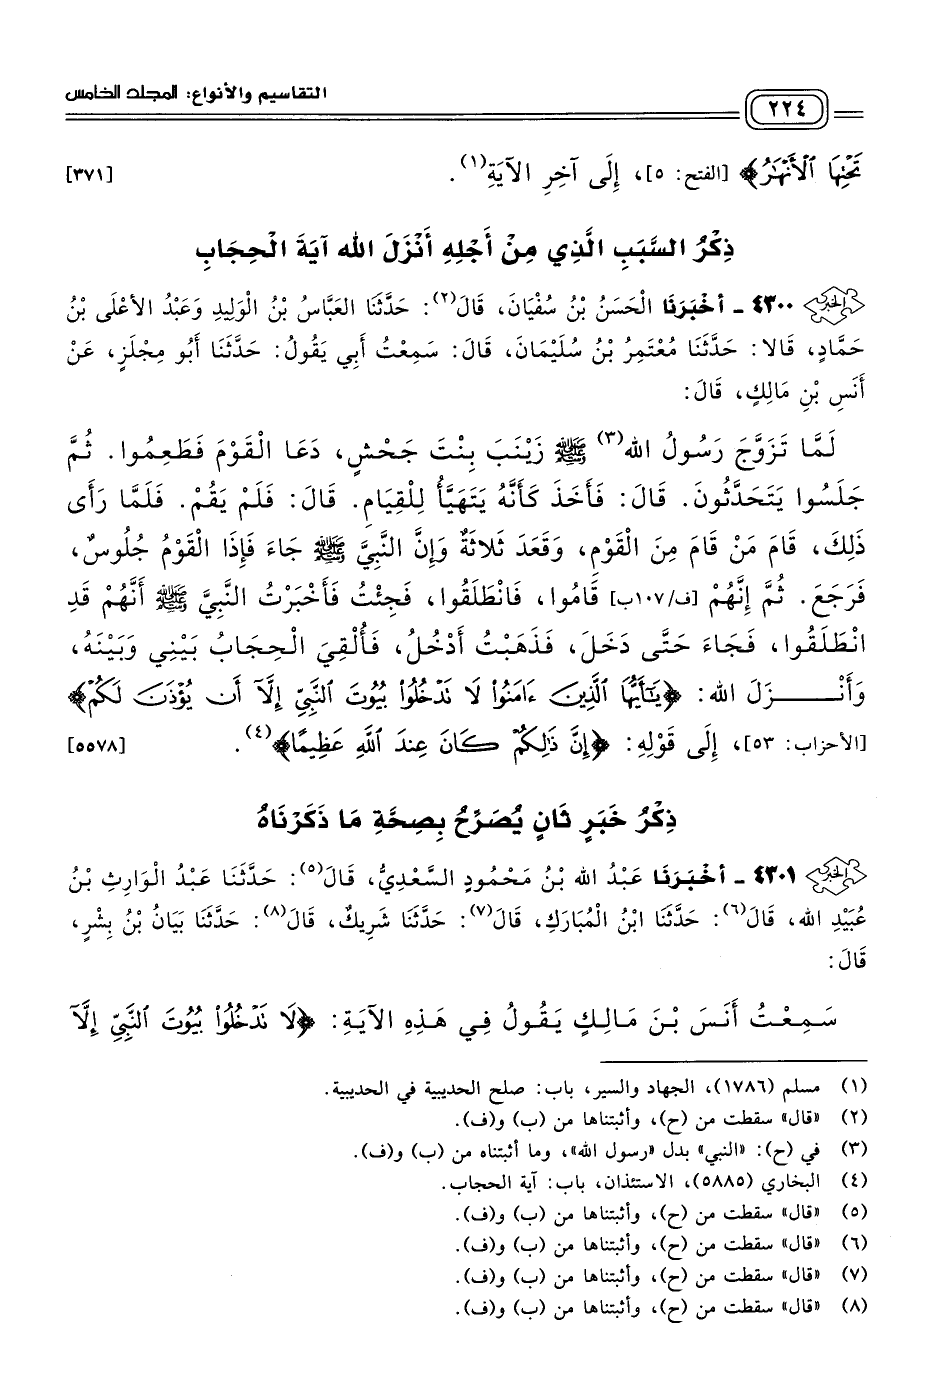 التقاسيم والأنواع: المجلد الخامس
٢٢٤
تَحْتِهَا ٱلْأَنْهَٰرُ﴾ [الفتح: ٥]، إِلَى آخِرِ الآيَةِ(١). [٣٧١]
ذِكْرُ السَّبَبِ الَّذِي مِنْ أَجْلِهِ أَنْزَلَ الله آيَةَ الْحِجَابِ
٤٣٠٠ ـ أَخْبَرَنَا الْحَسَنُ بْنُ سُفْيَانَ، قَالَ(٢): حَدَّثَنَا العَبَّاسُ بْنُ الْوَلِيدِ وَعَبْدُ الأَعْلَى بْنُ
حَمَّادٍ، قَالا: حَدَّثَنَا مُعْتَمِرُ بْنُ سُلَيْمَانَ، قَالَ: سَمِعْتُ أَبِي يَقُولُ: حَدَّثَنَا أَبُو مِجْلَزٍ، عَنْ
أَنَسِ بْنِ مَالِكٍ، قَالَ:
لَمَّا تَزَوَّجَ رَسُولُ الله(٣) ﷺ زَيْنَبَ بِنْتَ جَحْشٍ، دَعَا الْقَوْمَ فَطَعِمُوا. ثُمَّ
جَلَسُوا يَتَحَدَّثُونَ. قَالَ: فَأَخَذَ كَأَنَّهُ يَتَهَيَّأُ لِلْقِيَامِ. قَالَ: فَلَمْ يَقُمْ. فَلَمَّا رَأَى
ذَلِكَ، قَامَ مَنْ قَامَ مِنَ الْقَوْمِ، وَقَعَدَ ثَلاثَةٌ وَإِنَّ النَّبِيَّ ﷺ جَاءَ فَإِذَا الْقَوْمُ جُلُوسٌ،
فَرَجَعَ. ثُمَّ إِنَّهُمْ [ف/١٠٧ب] قَامُوا، فَانْطَلَقُوا، فَجِئْتُ فَأَخْبَرْتُ النَّبِيَّ ﷺ أَنَّهُمْ قَدِ
انْطَلَقُوا، فَجَاءَ حَتَّى دَخَلَ، فَذَهَبْتُ أَدْخُلُ، فَأُلْقِيَ الْحِجَابُ بَيْنِي وَبَيْنَهُ،
وَأَنْـــزَلَ الله: ﴿يَٰٓأَيُّهَا ٱلَّذِينَ ءَامَنُواْ لَا تَدْخُلُواْ بُيُوتَ ٱلنَّبِيِّ إِلَّآ أَن يُؤْذَنَ لَكُمْ﴾
[الأحزاب: ٥٣]، إِلَى قَوْلِهِ: ﴿إِنَّ ذَٰلِكُمْ كَانَ عِندَ ٱللَّهِ عَظِيمًا﴾(٤). [٥٥٧٨]
ذِكْرُ خَبَرٍ ثَانٍ يُصَرِّحُ بِصِحَّةِ مَا ذَكَرْنَاهُ
٤٣٠١ ـ أَخْبَرَنَا عَبْدُ الله بْنُ مَحْمُودٍ السَّعْدِيُّ، قَالَ(٥): حَدَّثَنَا عَبْدُ الْوَارِثِ بْنُ
عُبَيْدِ الله، قَالَ(٦): حَدَّثَنَا ابْنُ الْمُبَارَكِ، قَالَ(٧): حَدَّثَنَا شَرِيكٌ، قَالَ(٨): حَدَّثَنَا بَيَانُ بْنُ بِشْرٍ،
قَالَ:
سَمِعْتُ أَنَسَ بْنَ مَالِكٍ يَقُولُ فِي هَذِهِ الآيَةِ: ﴿لَا تَدْخُلُواْ بُيُوتَ ٱلنَّبِيِّ إِلَّآ
(١) مسلم (١٧٨٦)، الجهاد والسير، باب: صلح الحديبية في الحديبية.
(٢) «قال» سقطت من (ح)، وأثبتناها من (ب) و(ف).
(٣) في (ح): «النبي» بدل «رسول الله»، وما أثبتناه من (ب) و(ف).
(٤) البخاري (٥٨٨٥)، الاستئذان، باب: آية الحجاب.
(٥) «قال» سقطت من (ح)، وأثبتناها من (ب) و(ف).
(٦) «قال» سقطت من (ح)، وأثبتناها من (ب) و(ف).
(٧) «قال» سقطت من (ح)، وأثبتناها من (ب) و(ف).
(٨) «قال» سقطت من (ح)، وأثبتناها من (ب) و(ف).